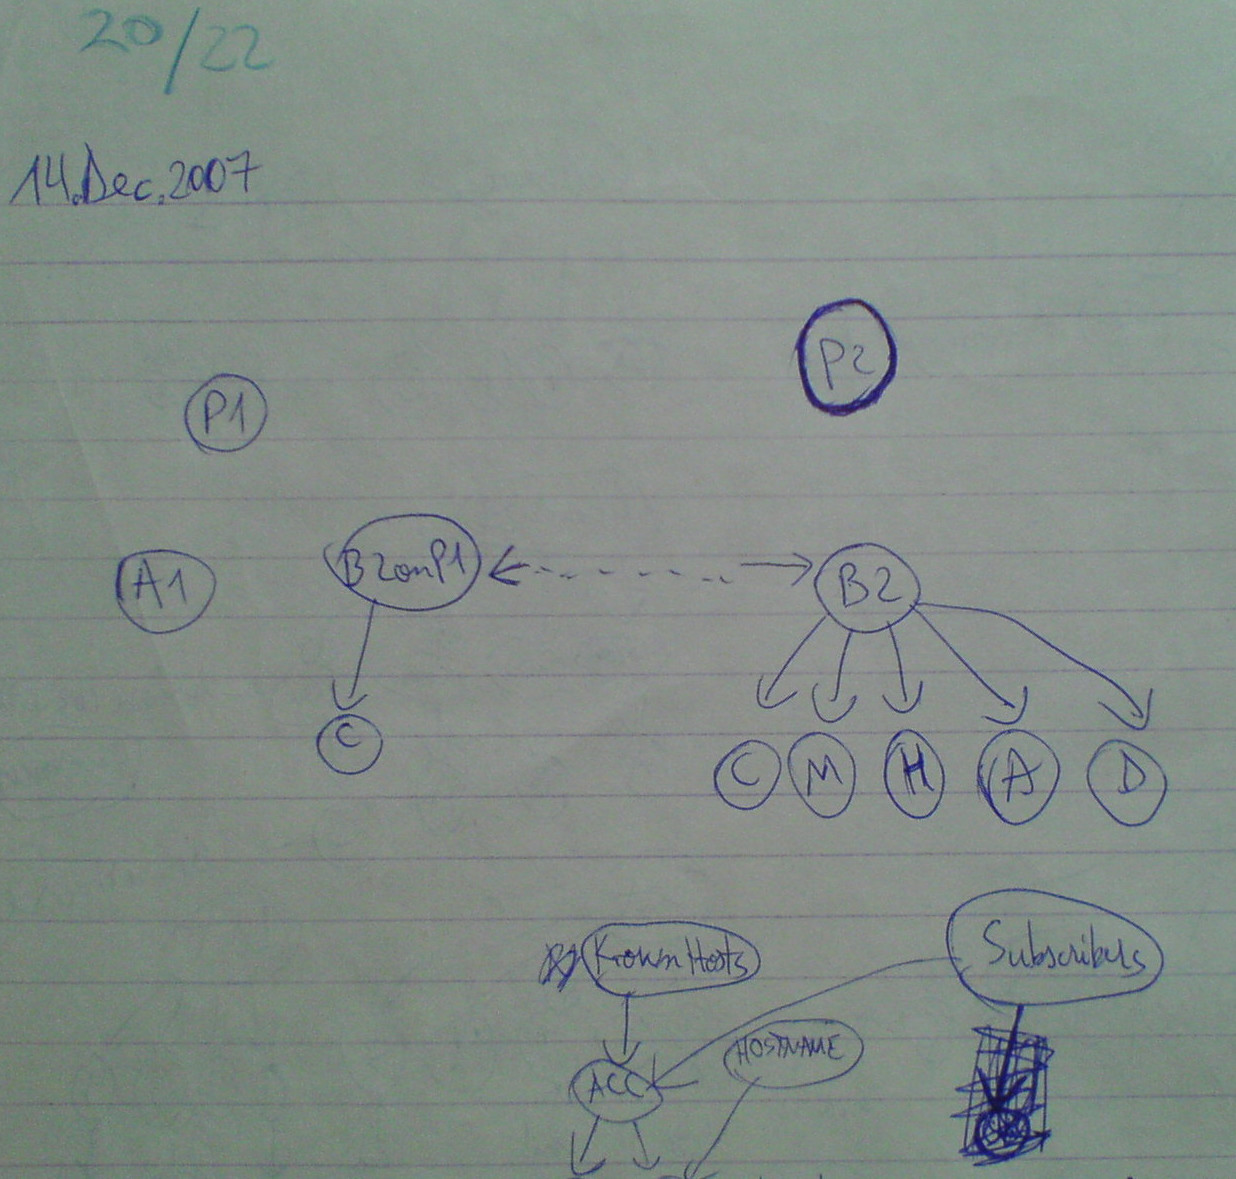 20/22
14.Dec.2007
P2
P1
A1
B2onP1
B2
C
C
M
H
A
D
KnownHosts
Subscribers
HOSTNAME
ACC